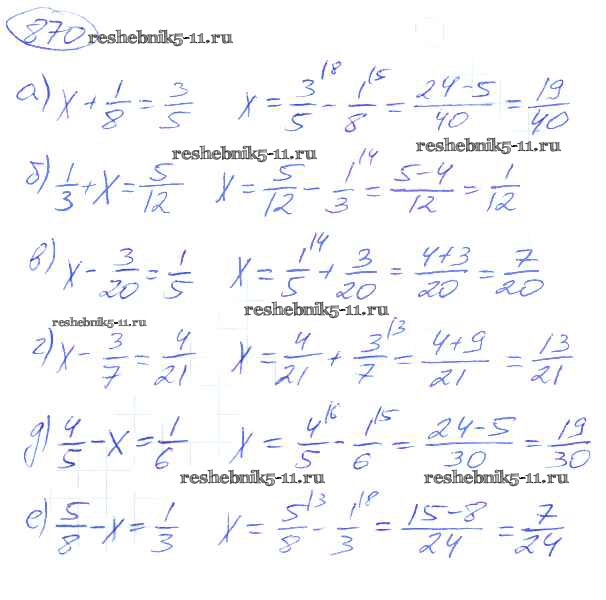 870 reshebnik5-11.ru
а) x + 1/8 = 3/5 x = 3/5 \8 - 1/8 \5 = 24-5/40 = 19/40
reshebnik5-11.ru reshebnik5-11.ru
б) 1/3 + x = 5/12 x = 5/12 - 1/3 \4 = 5-4/12 = 1/12
в) x - 3/20 = 1/5 x = 1/5 \4 + 3/20 = 4+3/20 = 7/20
reshebnik5-11.ru
reshebnik5-11.ru
г) x - 3/7 = 4/21 x = 4/21 + 3/7 \3 = 4+9/21 = 13/21
д) 4/5 - x = 1/6 x = 4/5 \6 - 1/6 \5 = 24-5/30 = 19/30
reshebnik5-11.ru reshebnik5-11.ru
е) 5/8 - x = 1/3 x = 5/8 \3 - 1/3 \8 = 15-8/24 = 7/24